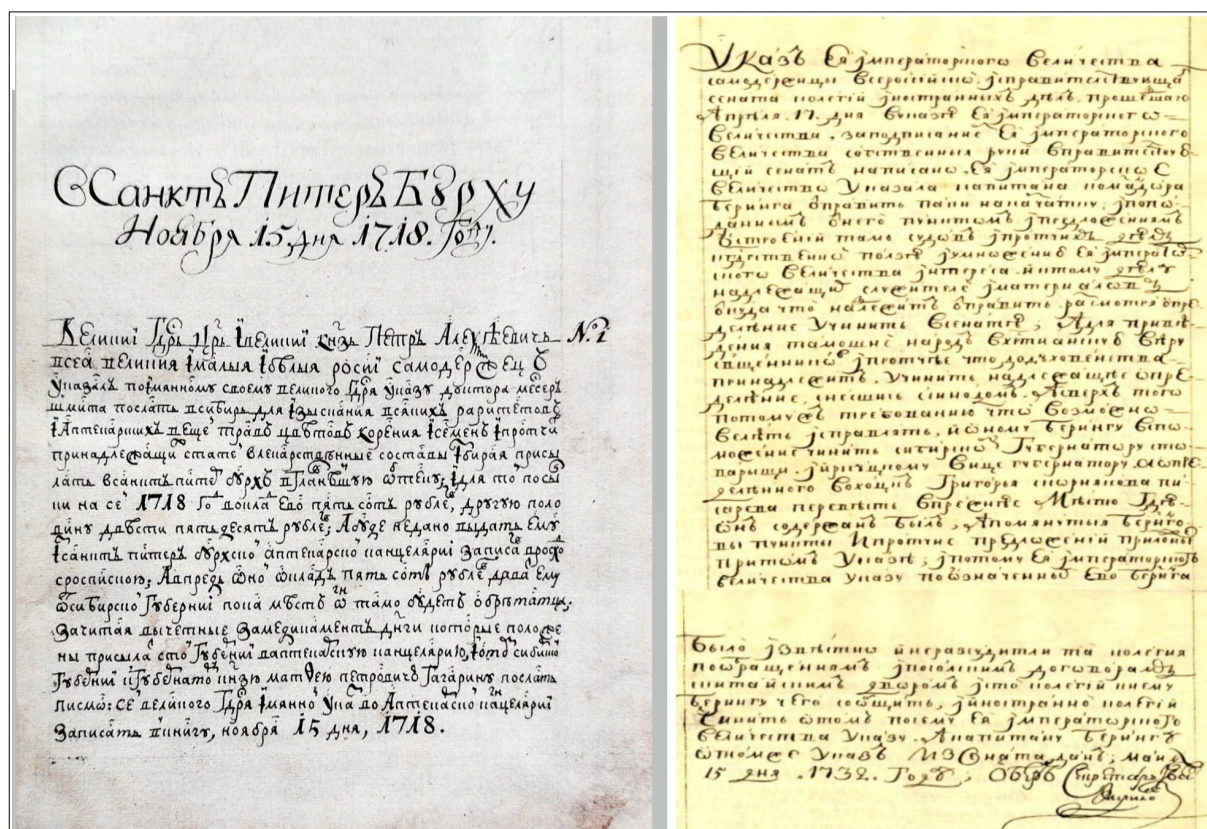 ВСанктъ Питеръ Бурху
Ноября 15 дня 1718. Году.
Великиї Гдрь Црь Ївеликиї Кнзь Петръ Алеѯѣевичь №. 1
всеа великия Їмалыя Їбѣлыя росиї самодержецъ
Указалъ поїмянному своему великого Гдря указу доктора месеръ
шмита послать всибирь для Їзыскания всякихъ раритетовъ
ЇАптекарскихъ вещеї травъ цвѣтовъ корения Їсеменъ Їпротчи
принадлежащи стате влекарственные составы Їбирая присы
лать всанктъ пите бурхъ вГлавъшую ѡптеку; Їдля то посы
ки на се 1718 Го дошла Ево пять сотъ рубле, другую поло
вину двѣсти пятьдесятъ рубле; Абуде недано выдать Ему
Їсанктъ питеръ бурхско аптекарско канцеляриї записа врасхо
сроспискою; Авпредь ѡно ѡкладъ пять сотъ рубле дава Ему
ѡсибирско Губерниї пока мѣстъ ѡ тамо будетъ обрѣтатца;
Зачитая вычетные Замедикаментъ днги которые положе
ны присыла сто Губерниї ваптекарскую канцелярию, Їѡто сибиско
Губерниї кГубернато кнзю матѳею петровичю Гагарину послать
писмо: се великого Гдря Їмянно Ука во Аптекаско кацеляриї
Записать вкнигу, ноября 15 дня, 1718.
Указъ Ея јмператорского величества
самодержицы всеросиїскиѡ, јсправителствующа
сената колегиї јностранныхъ дѣлъ. прошедшаго
Апреля. 17. дня вуказе Ея јмператорского
величества, заподписание Ея јмператорского
величества собственныя руки вправителствую
щеї сенатъ написано. Ея јмператорско
величество указала капитана командора
Беринга ѡправить паки накамчатку, јпопо
даннымъ ѡнего пунктомъ јпредложениямъ
ѡстроениї тамо судовъ јпротчихъ делъ
кгдственної ползе јумножению Ея јмператор
ского величества јнтереса. јктому делу
надлежащиї служителе јматериаловъ
ѡкуда что надлежитъ ѡправить. расмотря опре
деление учинить всенате; Адля приве
дения тамошне народъ вхстианскую вѣру
священниковъ јпротчее что додуховенства
принадлежитъ. учинить надлежащее опре
деление, снесшись ссинодомъ. Асверхъ того
потомужъ требованию что возможно
велѣть јсправлять, јѡному Берингу вспо
можение чинить сибирско Губернатору сто
варыщи, јїркуцкому вице губернатору, аѡпре
деленного вохоцкъ Григорья скорнякова пи
сарева перевесть впрежнее мѣсто Где
ѡнъ содержанъ былъ; Апомянутыя берингo
вы пункты Їпротчие предложениї приложе
притомъ указе; јпотому Ея јмператорского
величества указу повозначенныї Ево беринга
Было јзвѣстно јнеразсудитли та колегия
пообращениямъ јпосолскимъ договорамъ
скитаїскимъ двором јсто колегиї кнему
Берингу чего сообщить, јностранноï колегиї
чинить ѡтомъ посему Ея јмператорского
величества указу. Акапитану Берингу
ѡтомже указъ ИЗСената данъ; маия
15 дня. 1732. Году; Оберъ Секретарь
Кирило